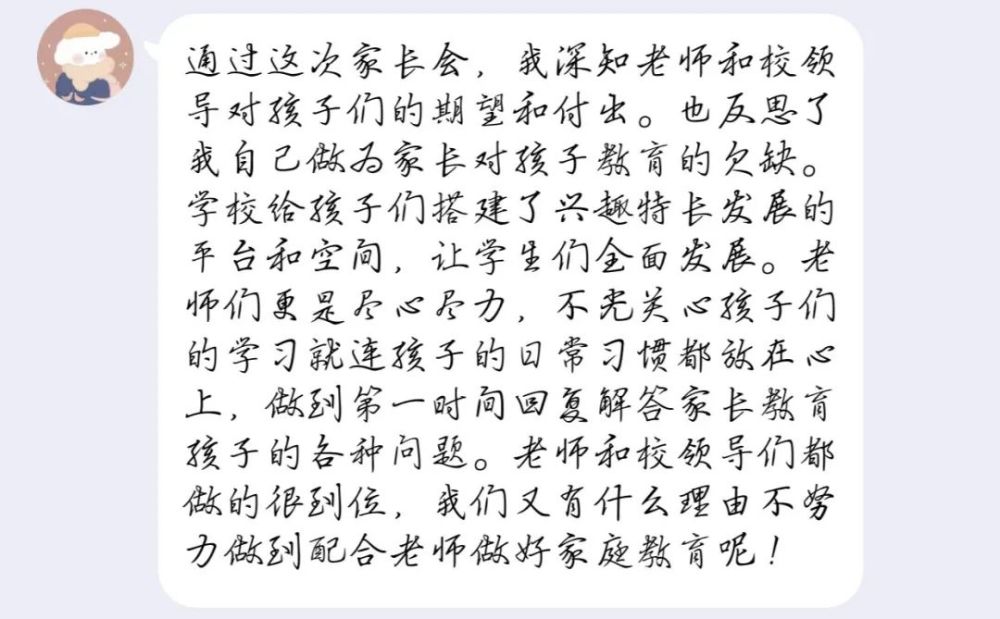 通过这次家长会，我深知老师和校领
导对孩子们的期望和付出。也反思了
我自己做为家长对孩子教育的欠缺。
学校给孩子们搭建了兴趣特长发展的
平台和空间，让学生们全面发展。老
师们更是尽心尽力，不光关心孩子们
的学习就连孩子的日常习惯都放在心
上，做到第一时间回复解答家长教育
孩子的各种问题。老师和校领导们都
做的很到位，我们又有什么理由不努
力做到配合老师做好家庭教育呢！